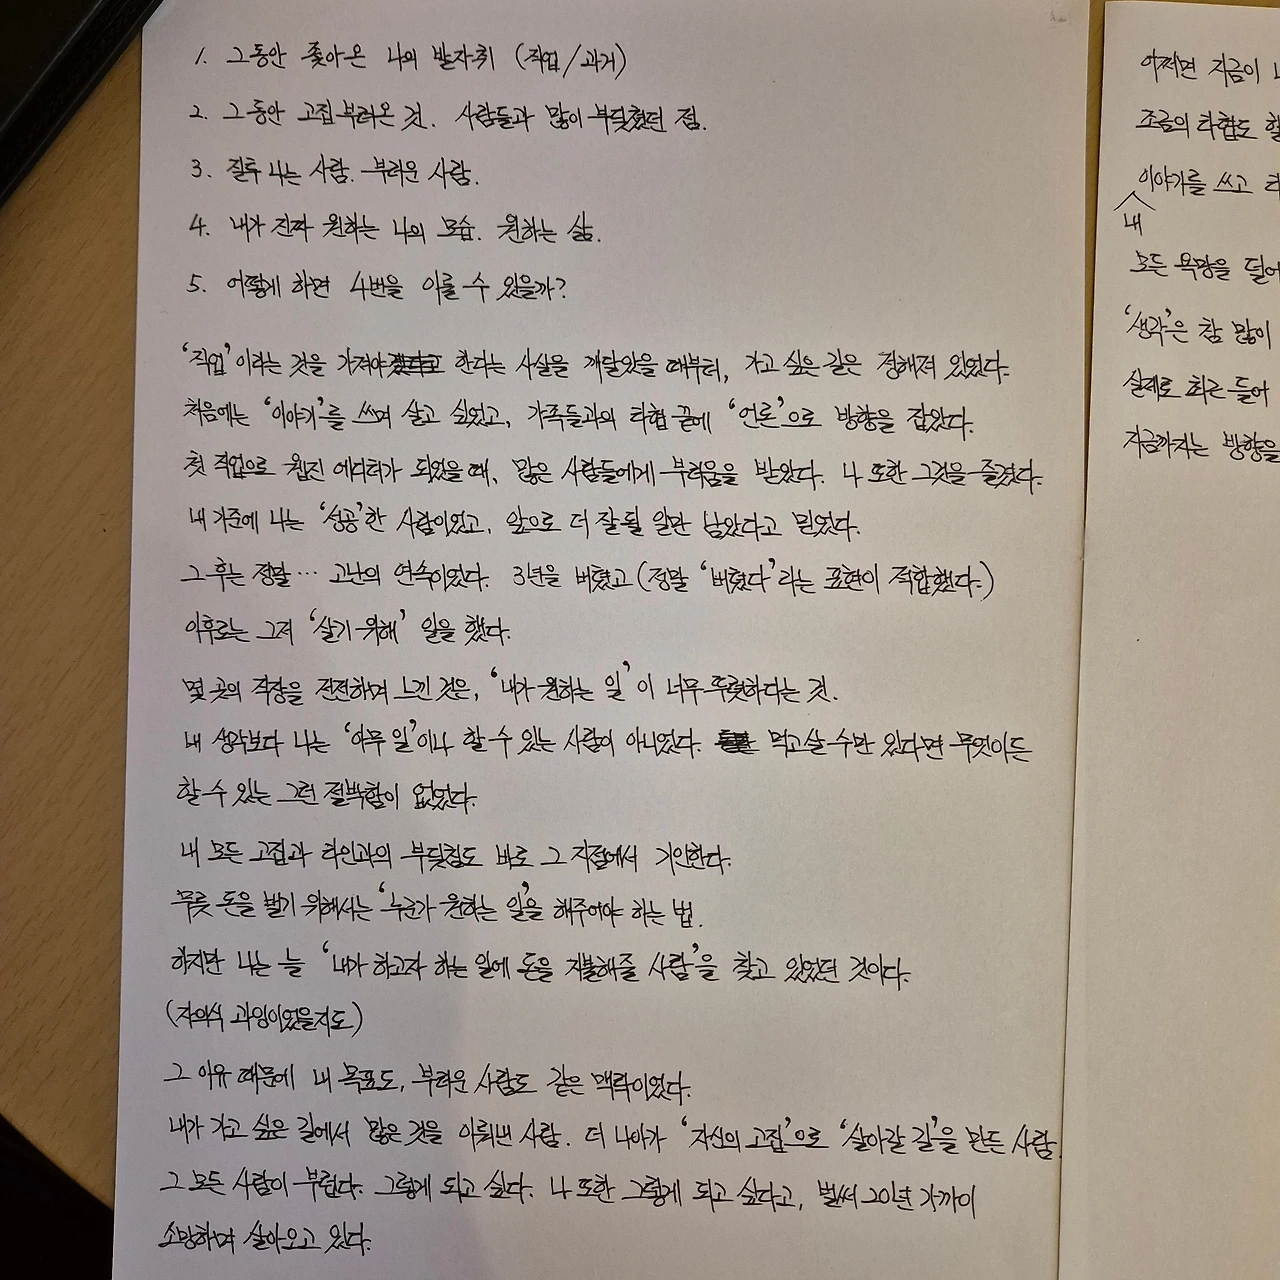 1. 그동안 쫓아온 나의 발자취 (직업/과거)
2. 그동안 고집부려온 것. 사람들과 많이 부딪혔던 점.
3. 질투나는 사람. 부러운 사람.
4. 내가 진짜 원하는 나의 모습. 원하는 삶.
5. 어떻게 하면 4번을 이룰 수 있을까?
'직업'이라는 것을 가져야 한다는 사실을 깨달았을 때부터, 가고 싶은 길은 정해져 있었다.
처음에는 '이야기'를 쓰며 살고 싶었고, 가족들과의 타협 끝에 '언론'으로 방향을 잡았다.
첫 직업으로 웹진 에디터가 되었을 때, 많은 사람들에게 부러움을 받았다. 나 또한 그것을 즐겼다.
내 기준에 나는 '성공'한 사람이었고, 앞으로 더 잘될 일만 남았다고 믿었다.
그 후는 정말… 고난의 연속이었다. 3년을 버텼고 (정말 '버텼다'라는 표현이 적합했다.)
이후로는 그저 '살기 위해' 일을 했다.
몇 곳의 직장을 전전하며 느낀 것은, '내가 원하는 일'이 너무 뚜렷하다는 것.
내 생각보다 나는 '아무 일'이나 할 수 있는 사람이 아니었다. 먹고살 수만 있다면 무엇이든
할 수 있는 그런 절박함이 없었다.
내 모든 고집과 타인과의 부딪침도 바로 그 지점에서 기인한다.
무릇 돈을 벌기 위해서는 '누군가 원하는 일'을 해주어야 하는 법.
하지만 나는 늘 '내가 하고자 하는 일에 돈을 지불해줄 사람'을 찾고 있었던 것이다.
(자의식 과잉이었을지도)
그 이유 때문에 내 목표도, 부러운 사람도 같은 맥락이었다.
내가 가고 싶은 길에서 많은 것을 이뤄낸 사람. 더 나아가 '자신의 고집'으로 '살아갈 길'을 만든 사람.
그 모든 사람이 부럽다. 그렇게 되고 싶다. 나 또한 그렇게 되고 싶다고, 벌써 20년 가까이
소망하며 살아오고 있다.
어쩌면 지금이
조금의 타협도
내 이야기를 쓰고
모든 욕망을
'생각'은 참 많이
실제로 최근 들어
지금까지는 방향을